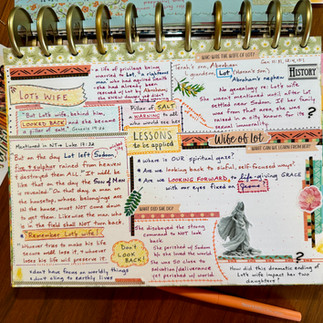 LOT'S WIFE
"But Lot's wife, behind him,
LOOKED BACK and she became
a pillar of salt." Genesis 19:26
- a life of privilege being
married to Lot, "a righteous
man" who had
she had already been
rescued of by Abraham,
Pillar of SALT
a WARNING to all
the world
WHO WAS THE WIFE OF LOT?
Terah's son, Abraham
grandson, Lot (Haran's son,)
Abraham's nephew
No genealogy of Lot's wife
She wasn't mentioned until after Lot
settled near Sodom. If her family
was from that area, she was
raised in a city known for its
immorality.
HISTORY
LESSONS
to be applied
Wife of lot
WHAT CAN WE LEARN FROM HER?
Where is OUR spiritual gaze?
Are we looking back to sinful, self-focused ways?
Are we LOOKING FORWARD to life-giving GRACE
with our eyes fixed on Jesus?
Mentioned in
But on the day Lot left Sodom,
fire & sulphur rained from heaven
& destroyed them ALL. It will be
like that on the day the Son of Man
is revealed. On that day a man on
the housetop, whose belongings are
in the house, must NOT come down
to get them. Likewise the man who
in the field shall NOT turn back.
Remember Lot's wife!
Whoever tries to make his life
secure will lose it, & whoever
loses his life will preserve it.
don't have focus on worldly things
don't cling to earthly lives
Don't
LOOK
BACK!
WHAT DID SHE DO?
She disobeyed the strong
command to not look
back.
She perished w/ Sodom
b/c she loved the world.
She was SO close to
salvation/deliverance
yet perished w/ world.
How did this dramatic ending of
Lot's wife impact her two
daughters?